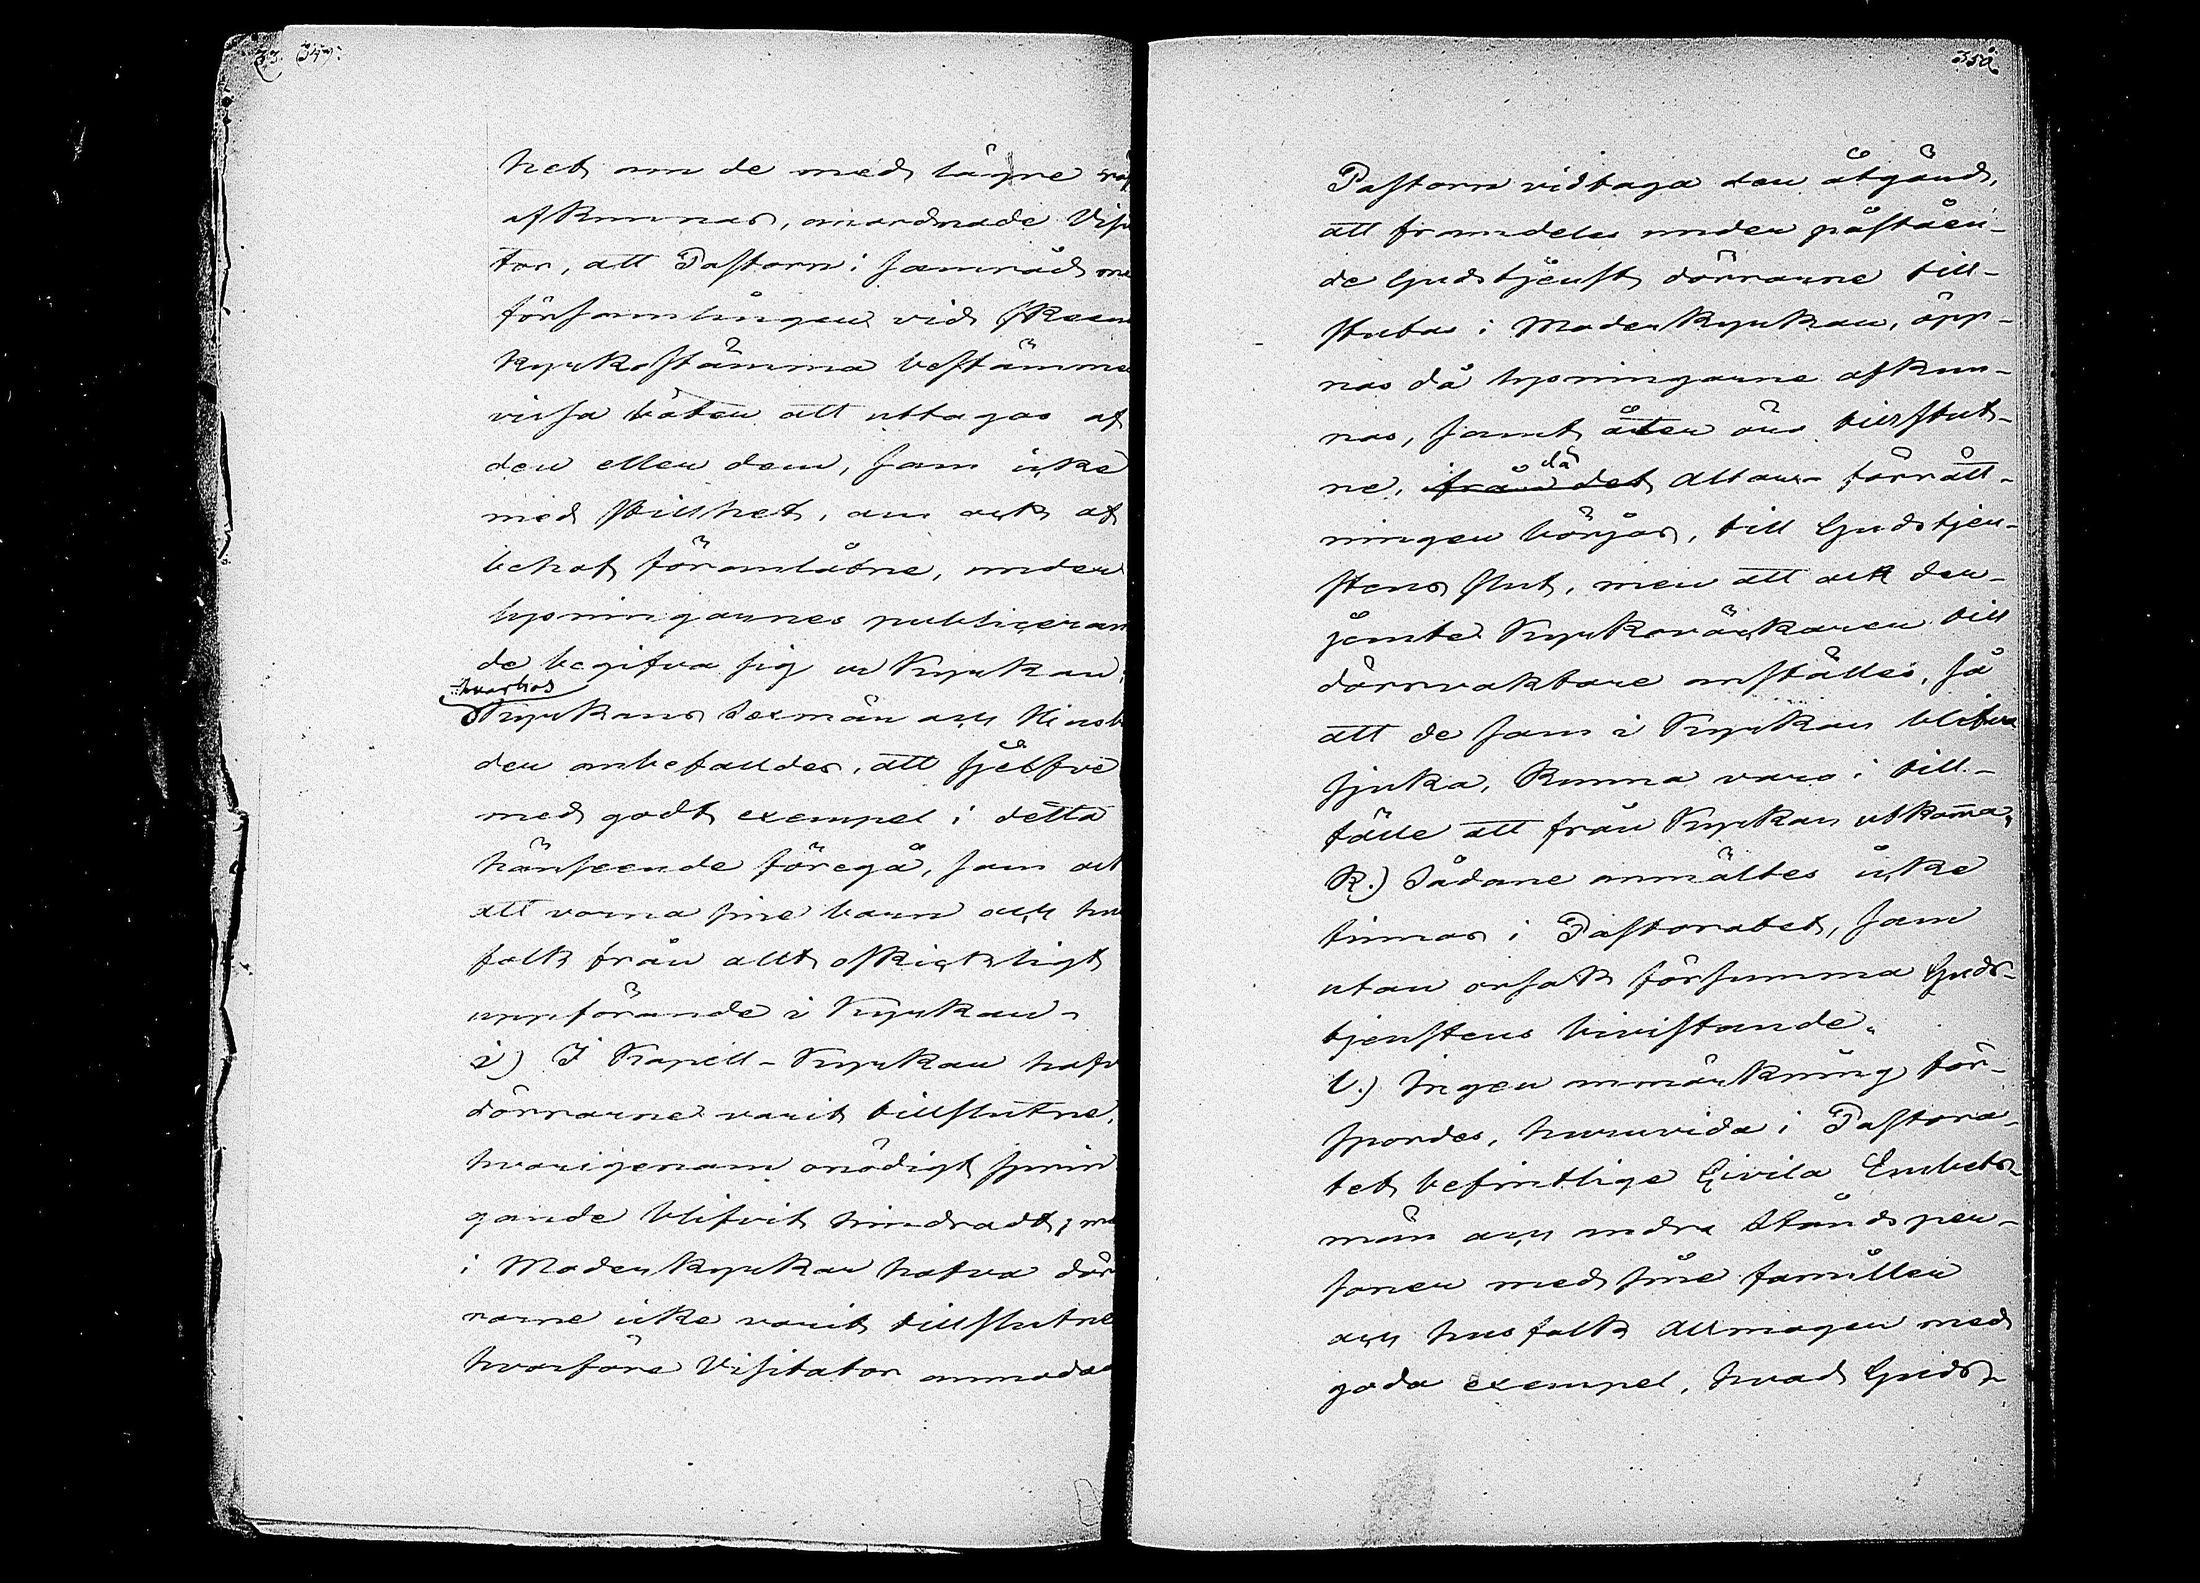 33. 349.
het om de med lägre rös
afkunnas, anordnade Visi
tor, att Pastorn i samråd me
församlingen vid skeen
kyrkostämma bestämma
vissa böter att uttagas af
den eller dem, som icke
med stillhet, om ock af
behof föranlåtne, under
lysningarnes publiceran
de begifva sig ur Kyrkan,
hvarhos
Kyrkans Sexmän och
den anbefalldes, att sjelfve
med godt exempel i detta
hänseende föregå, som ock
att varna sine barn och hus
folk från allt oskickligt
uppförande i Kyrkan.
i) I Kapell-Kyrkan hafv
dörrarne varit tillslutne,
hvarigenom onödigt sprin
gande blifvit hindradt, me
i Moderkyrkan hafva dör
rarne icke varit tillslutne
hvarföre Visitator anmodad
350.
Pastorn vidtaga den åtgärd,
att framdeles under påståen-
de Gudstjenst dörrarne till-
slutas i Moderkyrkan, öpp-
nas då lysningarne afkun-
nas, samt åter äro tillslut-
då
ne, ifrån det Altar-förrätt-
ningen börjas, till Gudstjen-
stens slut, men att ock der-
jemte Kyrkoväcktaren till
dörrvaktare anställes, så
att de som i Kyrkan blifva
sjuka, kunna vara i till-
fälle att från Kyrkan utkomma.
k.) Sådane anmältes icke
finnas i Pastoratet, som
utan orsak försumma Guds-
tjenstens bivistande.
l.) Ingen anmärkning för-
spordes, huruvida i Pastora-
tet befintlige Civila Embets-
män och andra Stånds per-
soner med sine familler
och husfolk Allmogen med
goda exempel, hvad Guds-